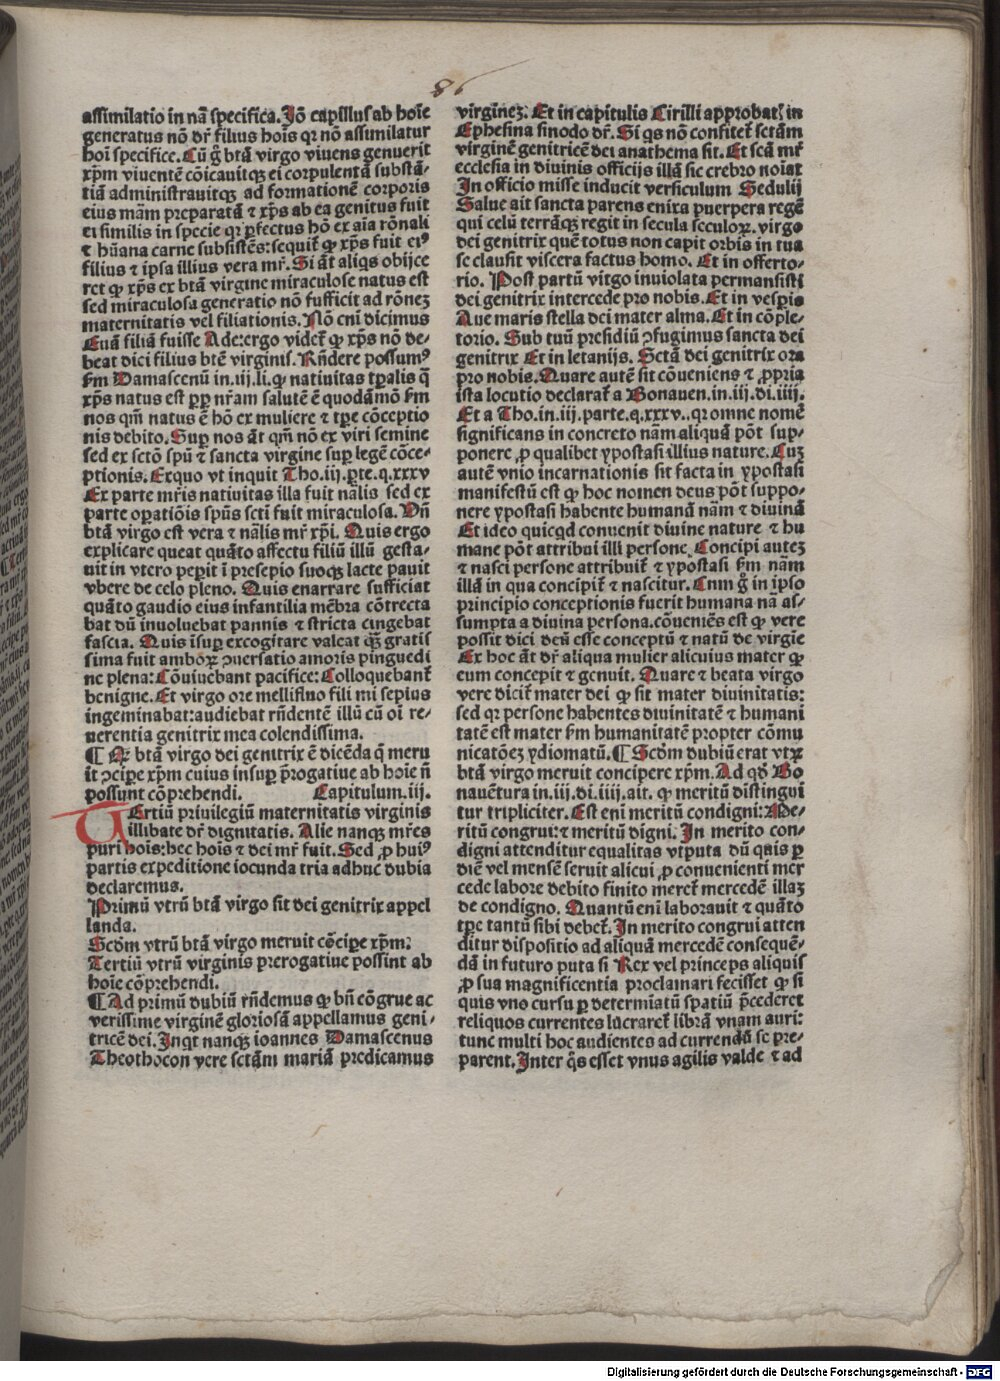 86
assimilatio in nā specifica. Jō capillus ab hoīe
generatus nō dr̄ filius hoīs qr nō assimilatur
hoī specifice. Cū g̊ btā virgo viuens genuerit
xp̄m viuentē cōicauitqꝫ ei corpulentā substā-
tiā administrauitqꝫ ad formationē corporis
eius mām preparatā ⁊ xp̄s ab ea genitus fuit
ei similis in specie qr ꝑfectus hō ex aīa rōnali
⁊ hūana carne subsistēs: sequiť ꝙ xp̄s fuit eiꝰ
filius ⁊ ipsa illius vera mr̄. Si āt aliqs obijce
ret ꝙ xp̄s ex btā virgine miraculose natus est
sed miraculosa generatio nō sufficit ad rōneꝫ
maternitatis vel filiationis. Nō eni dicimus
Euā filiā fuisse Ade: ergo videť ꝙ xp̄s nō de-
beat dici filius btē virginis. Rn̄dere possumꝰ
fm Damascenū in .iij. li. ꝙ natiuitas tp̄alis q̄
xp̄s natus est ꝓp nr̄am salutē ē quodāmō fm
nos qm̄ natus ē hō ex muliere ⁊ tp̄e cōceptio
nis debito. Suꝑ nos āt qm̄ nō ex viri semine
sed ex sctō spū ⁊ sancta virgine suꝑ legē cōce-
ptionis. Exquo vt inquit Tho. iij. ꝑte. q. xxxv
Ex parte mr̄is natiuitas illa fuit nālis sed ex
parte oꝑatiōis spūs scti fuit miraculosa. Vn̄
btā virgo est vera ⁊ nālis mr̄ xp̄i. Quis ergo
explicare queat quāto affectu filiū illū gesta-
uit in vtero peꝑit ī presepio suoqꝫ lacte pauit
vbere de celo pleno. Quis enarrare sufficiat
quāto gaudio eius infantilia mēbra cōtrecta
bat dū inuoluebat pannis ⁊ stricta cingebat
fascia. Quis īsuꝑ excogitare valeat qꝫ gratis
sima fuit amboꝝ ꝯuersatio amoris pinguedi
ne plena: Cōuiuebant pacifice: Colloquebanť
benigne. Et virgo ore mellifluo fili mi sepius
ingeminabat: audiebat rn̄dentē illū cū oī re-
uerentia genitrix mea colendissima.
¶ Qr̄ btā virgo dei genitrix ē dicēda ꝙ meru
it ꝯcipe xp̄m cuius insuꝑ p̄rogatiue ab hoīe n̄
possunt cōprehendi. Capitulum. iij.
TErtiū priuilegiū maternitatis virginis
illibate dr̄ dignitatis. Alie nanqꝫ mr̄es
puri hoīs: hec hoīs ⁊ dei mr̄ fuit. Sed ꝓ huiꝰ
partis expeditione iocunda tria adhuc dubia
declaremus.
Primū vtrū btā virgo sit dei genitrix appel
landa.
Scd̄m vtrū btā virgo meruit cōciꝑe xp̄m:
Tertiū vtrū virginis prerogatiue possint ab
hoīe cōprehendi.
¶ Ad primū dubiū rn̄demus ꝙ bn̄ cōgrue ac
verissime virginē gloriosā appellamus geni-
tricē dei. Inqt nanqꝫ ioannes Damascenus
Theothocon vere sctām mariā predicamus
virgineꝫ. Et in capitulis Cirilli approbať in
Ephesina sinodo dr̄. Si qs nō confiteť sctām
virginē genitricē dei anathema sit. Et scā mr̄
ecclesia in diuinis officijs illā sic crebro noīat
In officio misse inducit versiculum Sedulij
Salue ait sancta parens enixa puerpera regē
qui celū terrāqꝫ regit in secula seculoꝝ. virgo
dei genitrix quē totus non capit orbis in tua
se clausit viscera factus homo. Et in offerto-
rio. Post partū virgo inuiolata permansisti
dei genitrix intercede pro nobis. Et in vespis
Aue maris stella dei mater alma. Et in cōple-
torio. Sub tuū presidiū ꝯfugimus sancta dei
genitrix Et in letanijs. Sctā dei genitrix ora
pro nobis. Quare autē sit cōueniens ⁊ ꝓpria
ista locutio declarať a Bonauen. in. iij. di. iiij.
Et a Tho. in. iij. parte. q. xxxv. . qr omne nomē
significans in concreto nām aliquā pōt sup-
ponere ꝓ qualibet ypostasi illius nature. Cuꝫ
autē vnio incarnationis sit facta in ypostasi
manifestū est ꝙ hoc nomen deus pōt suppo-
nere ypostasi habente humanā nām ⁊ diuinā
Et ideo quicqd conuenit diuine nature ⁊ hu
mane pōt attribui illi persone. Concipi auteꝫ
⁊ nasci persone attribuiť ⁊ ypostasi fm nam
illā in qua concipiť ⁊ nascitur. Cum g̊ in ipso
principio conceptionis fuerit humana nā as-
sumpta a diuina persona. cōueniēs est ꝙ vere
possit dici deū esse conceptū ⁊ natū de virgie
Ex hoc āt dr̄ aliqua mulier alicuius mater ꝙ
eum concepit ⁊ genuit. Quare ⁊ beata virgo
vere diciť mater dei ꝙ sit mater diuinitatis:
sed qr persone habentes diuinitatē ⁊ humani
tatē est mater fm humanitatē propter cōmu
nicatōeꝫ ydiomatū. ¶ Scd̄m dubiū erat vtꝝ
btā virgo meruit concipere xp̄m. Ad qd̄ Bo
nauētura in. iij. di. iiij. ait. ꝙ meritū distingui
tur tripliciter. Est eni meritū condigni: Me-
ritū congrui: ⁊ meritū digni. In merito con-
digni attenditur equalitas vtputa dū quis ꝑ
diē vel mensē seruit alicui ꝓ conuenienti mer
cede labore debito finito mereť mercedē illaꝫ
de condigno. Quantū eni laborauit ⁊ quāto
tp̄e tantū sibi debeť. In merito congrui atten
ditur dispositio ad aliquā mercedē consequē-
dā in futuro puta si Rex vel princeps aliquis
ꝓ sua magnificentia proclamari fecisset ꝙ si
quis vno cursu ꝑ determiatū spatiū p̄cederet
reliquos currentes lucrareť librā vnam auri:
tunc multi hoc audientes ad currendū se pre-
parent. Inter q̄s esset vnus agilis valde ⁊ ad
Digitalisierung gefördert durch die Deutsche Forschungsgemeinschaft - DFG